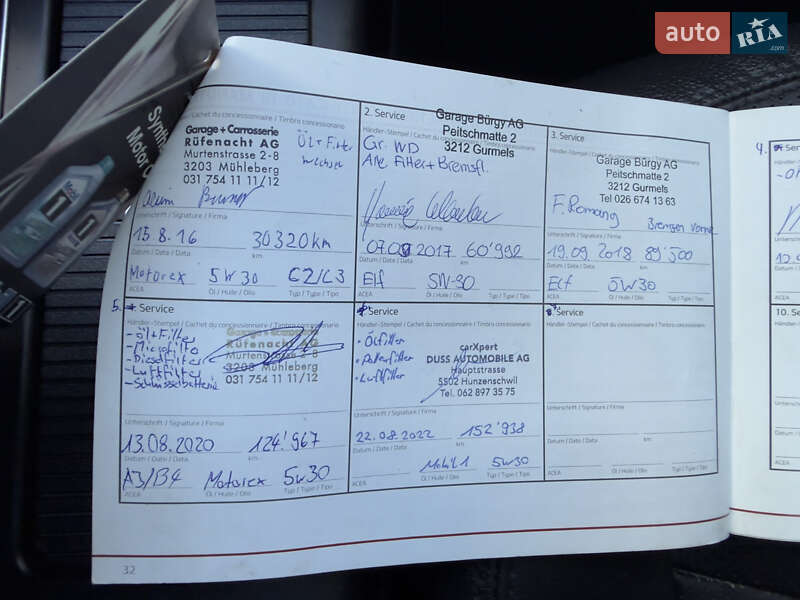 auto RIA.com
Synth
Motor O
Mobil 1
2. Service
3. Service
4.
Händler-Stempel / Cachet du concessionnaire / Timbro concessionario
Garage + Carrosserie
Rüfenacht AG
Murtenstrasse 2-8
3203 Mühleberg
031 754 11 11/12
Öl + Filter
Unterschrift / Signature / Firma
15.8.16 30320 km
Datum / Date / Data km
Motorex 5W30 C2/C3
ACEA Öl / Huile / Olio Typ / Type / Tipo
Händler-Stempel / Cachet du concessionnaire / Timbro concessionario
Garage Bürgy AG
Peitschmatte 2
3212 Gurmels
Gr. WD
Alle Filter + Bremsfl.
Unterschrift / Signature / Firma
07.09 2017 60'992
Datum / Date / Data km
Elf 5W-30
ACEA Öl / Huile / Olio Typ / Type / Tipo
Händler-Stempel / Cachet du concessionnaire / Timbro concessionario
Garage Bürgy AG
Peitschmatte 2
3212 Gurmels
Tel 026 674 13 63
F. Remang Bremsen Vorne
Unterschrift / Signature / Firma
19.09.2018 89'500
Datum / Date / Data km
Elf 5W30
ACEA Öl / Huile / Olio Typ / Type / Tipo
5. Service
Händler-Stempel / Cachet du concessionnaire / Timbro concessionario
- Öl + Filter
- Microfilter
- Dieselfilter
- Luftfilter
- Schlüsselbatterie
Garage + Carrosserie
Rüfenacht AG
Murtenstrasse 2-8
3203 Mühleberg
031 754 11 11/12
Unterschrift / Signature / Firma
13.08.2020 124'967
Datum / Date / Data km
A3/B4 Motorex 5W30
ACEA Öl / Huile / Olio Typ / Type / Tipo
Service
Händler-Stempel / Cachet du concessionnaire / Timbro concessionario
- Ölfilter
- Pollenfilter
- Luftfilter
carXpert
DUSS AUTOMOBILE AG
Hauptstrasse
5502 Hunzenschwil
Tel. 062 897 35 75
Unterschrift / Signature / Firma
22.08.2022 152'938
Datum / Date / Data km
Mobil 1 5W30
ACEA Öl / Huile / Olio Typ / Type / Tipo
Service
Händler-Stempel / Cachet du concessionnaire / Timbro concessionario
Unterschrift / Signature / Firma
Datum / Date / Data km
ACEA Öl / Huile / Olio Typ / Type / Tipo
10. Se
Händler-
Datum
ACEA
32